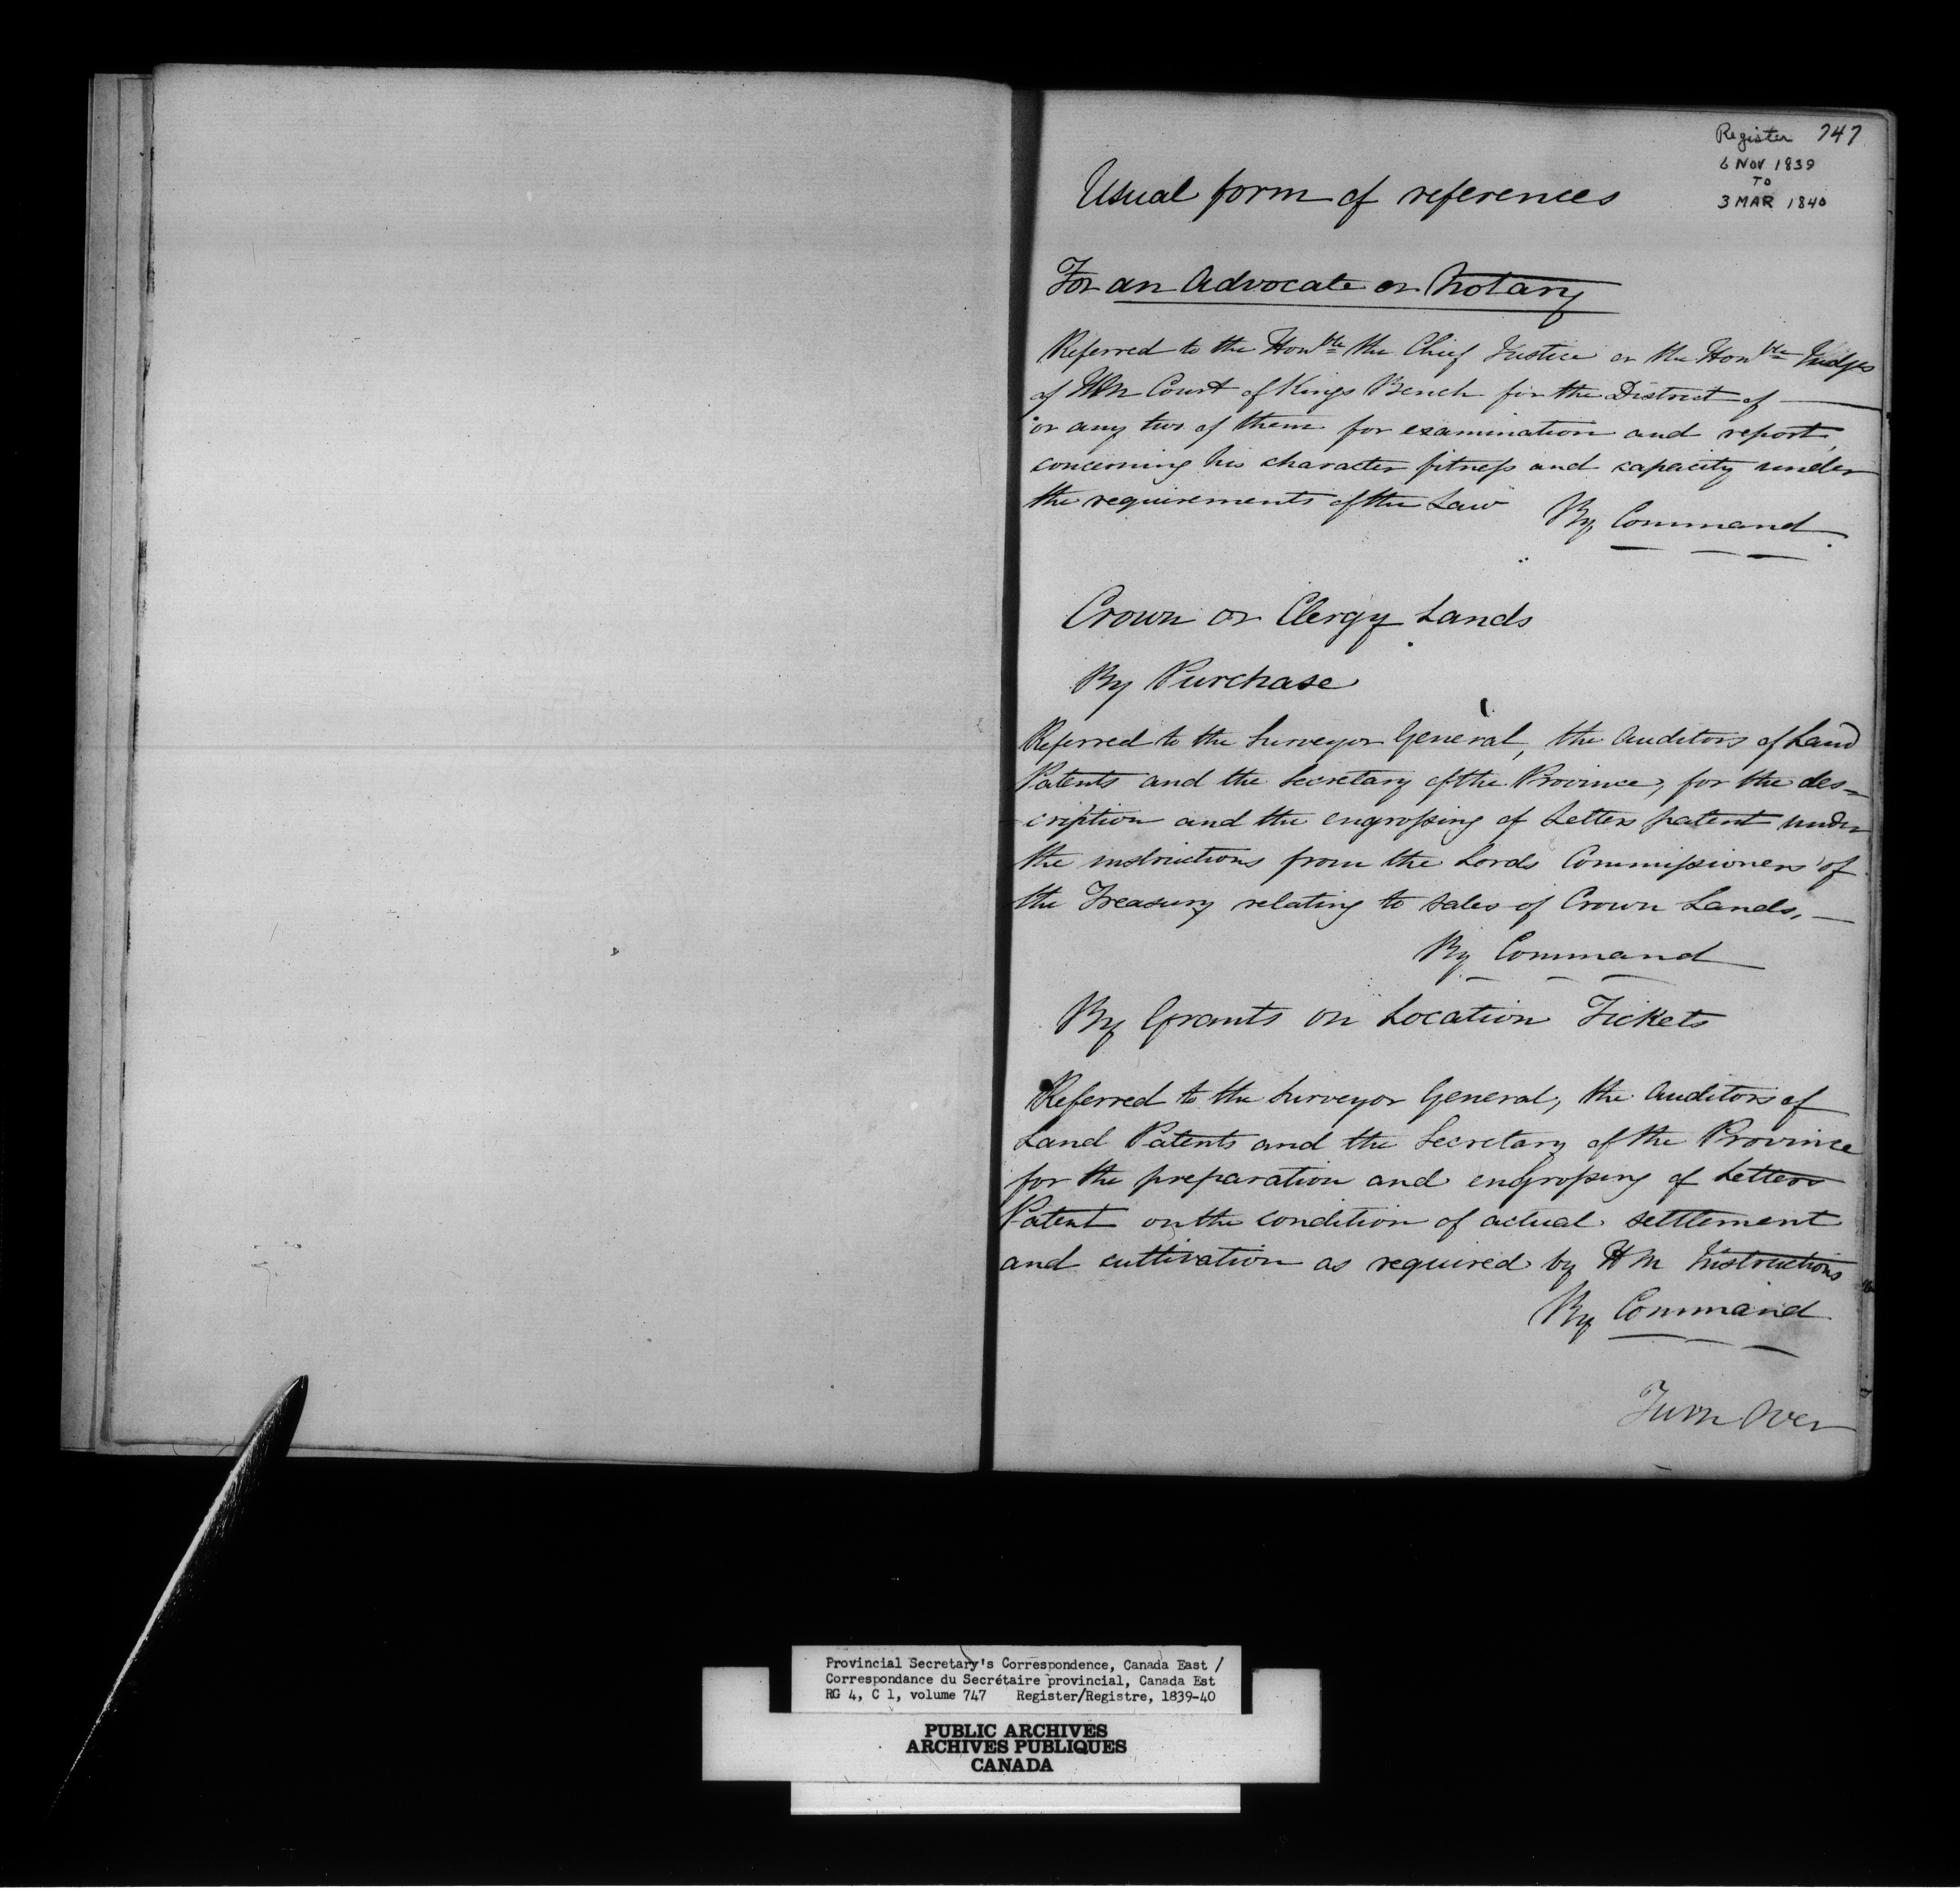 Register 747
6 NOV 1839
TO
3 MAR 1840
Usual form of references
For an Advocate or Notary
Referred to the Honble the Chief Justice or the Honble Judges
of HM Court of Kings Bench for the District of —
or any two of them for examination and report,
concerning his character fitness and capacity under
the requirements of the Law
By Command.
Crown or Clergy Lands
By Purchase
Referred to the Surveyor General, the Auditors of Land
Patents and the Secretary of the Province, for the des=
cription and the engrossing of Letters patent under
the instructions from the Lords Commissioners of
the Treasury relating to sales of Crown Lands, —
By Command
By Grants on Location Tickets
Referred to the Surveyor General, the Auditors of
Land Patents and the Secretary of the Province
for the preparation and engrossing of Letters
Patent on the condition of actual settlement
and cultivation as required by H M Instructions
By Command
Turn Over
Provincial Secretary's Correspondence, Canada East /
Correspondance du Secrétaire provincial, Canada Est
RG 4, C 1, volume 747 Register/Registre, 1839-40
PUBLIC ARCHIVES
ARCHIVES PUBLIQUES
CANADA